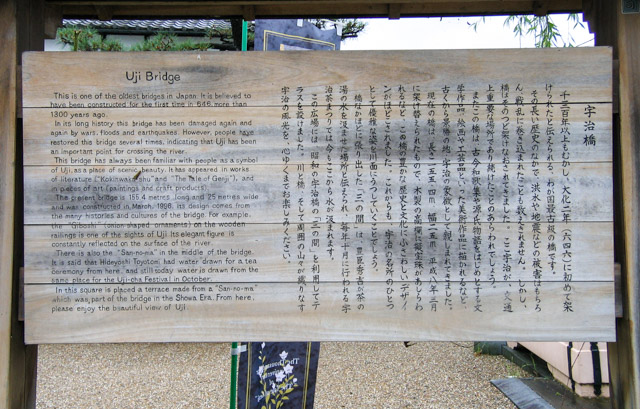 Uji Bridge
This is one of the oldest bridges in Japan. It is believed to
have been constructed for the first time in 646, more than
1300 years ago.
In its long history this bridge has been damaged again and
again by wars, floods and earthquakes. However, people have
restored this bridge several times, indicating that Uji has been
an important point for crossing the river.
This bridge has always been familiar with people as a symbol
of Uji, as a place of scenic beauty. It has appeared in works
of literature ("Kokinwaka-shu" and "The Tale of Genji"), and
in pieces of art (paintings and craft products).
The present bridge is 155.4 metres long and 25 metres wide
and was constructed in March, 1996. Its design comes from
the many histories and cultures of the bridge. For example,
the "Giboshi" (onion shaped ornaments) on the wooden
railings is one of the sights of Uji. Its elegant figure is
constantly reflected on the surface of the river.
There is also the "San-no-ma" in the middle of the bridge.
It is said that Hideyoshi Toyotomi had water drawn for a tea
ceremony from here, and still today water is drawn from the
same place for the Uji-cha Festival in October.
In this square is placed a terrace made from a "San-no-ma"
which was part of the bridge in the Showa Era. From here,
please enjoy the beautiful view of Uji.
宇治橋
千三百年以上もむかし、大化二年(六四六)に初めて架
けられたと伝えられる、わが国最古級の橋です。
その長い歴史のなかで、洪水や地震などの被害はもちろ
ん、戦乱に巻き込まれたことも数えきれません。しかし、
橋はそのつど架けなおされてきました。ここ宇治が、交通
上重要な場所であり続けたことのあらわれでしょう。
またこの橋は、古今和歌集や源氏物語をはじめとする文
学作品や、絵画や工芸品といった美術作品に描かれるなど、
古くから景勝の地・宇治の象徴として親しまれてきました。
現在の橋は、長さ一五五・四m、幅二五m、平成八年三月
に架け替えられたもので、木製の高欄に擬宝珠があしらわ
れるなど、この橋の豊かな歴史と文化にふさわしいデザイ
ンがほどこされました。これからも、宇治の名所のひとつ
として優雅な姿を川面にうつしていくことでしょう。
橋なかほどに張り出した「三の間」は、豊臣秀吉が茶の
湯の水を汲ませた場所と伝えられ、毎年十月に行われる宇
治茶まつりでは今もここから水が汲まれます。
この広場には、昭和の宇治橋の「三の間」を利用してテ
ラスを設けました。川と橋、そして周囲の山々が織りなす
宇治の風光を、心ゆくまでお楽しみください。